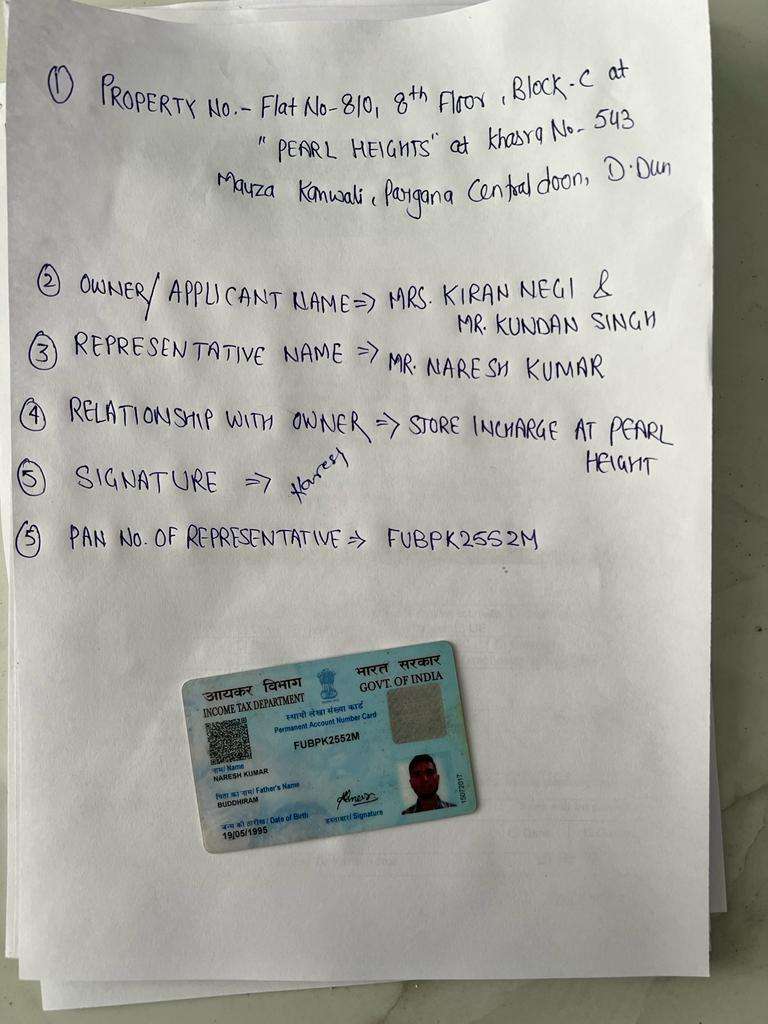 ① PROPERTY No.- Flat No-810, 8th Floor, Block-C at
" PEARL HEIGHTS" at Khasra No- 543
Mauza Kanwali, Pargana Central doon, D.Dun
② OWNER/ APPLICANT NAME => MRS. KIRAN NEGI &
MR. KUNDAN SINGH
③ REPRESENTATIVE NAME => MR. NARESH KUMAR
④ RELATIONSHIP WITH OWNER => STORE INCHARGE AT PEARL
HEIGHT
⑤ SIGNATURE => Naresh
⑤ PAN No. OF REPRESENTATIVE => FUBPK2552M
आयकर विभाग भारत सरकार
INCOME TAX DEPARTMENT GOVT. OF INDIA
स्थायी लेखा संख्या कार्ड
Permanent Account Number Card
FUBPK2552M
नाम/ Name
NARESH KUMAR
पिता का नाम/ Father's Name
BUDDHIRAM
जन्म की तारीख/ Date of Birth
19/05/1995
हस्ताक्षर/ Signature
15072017